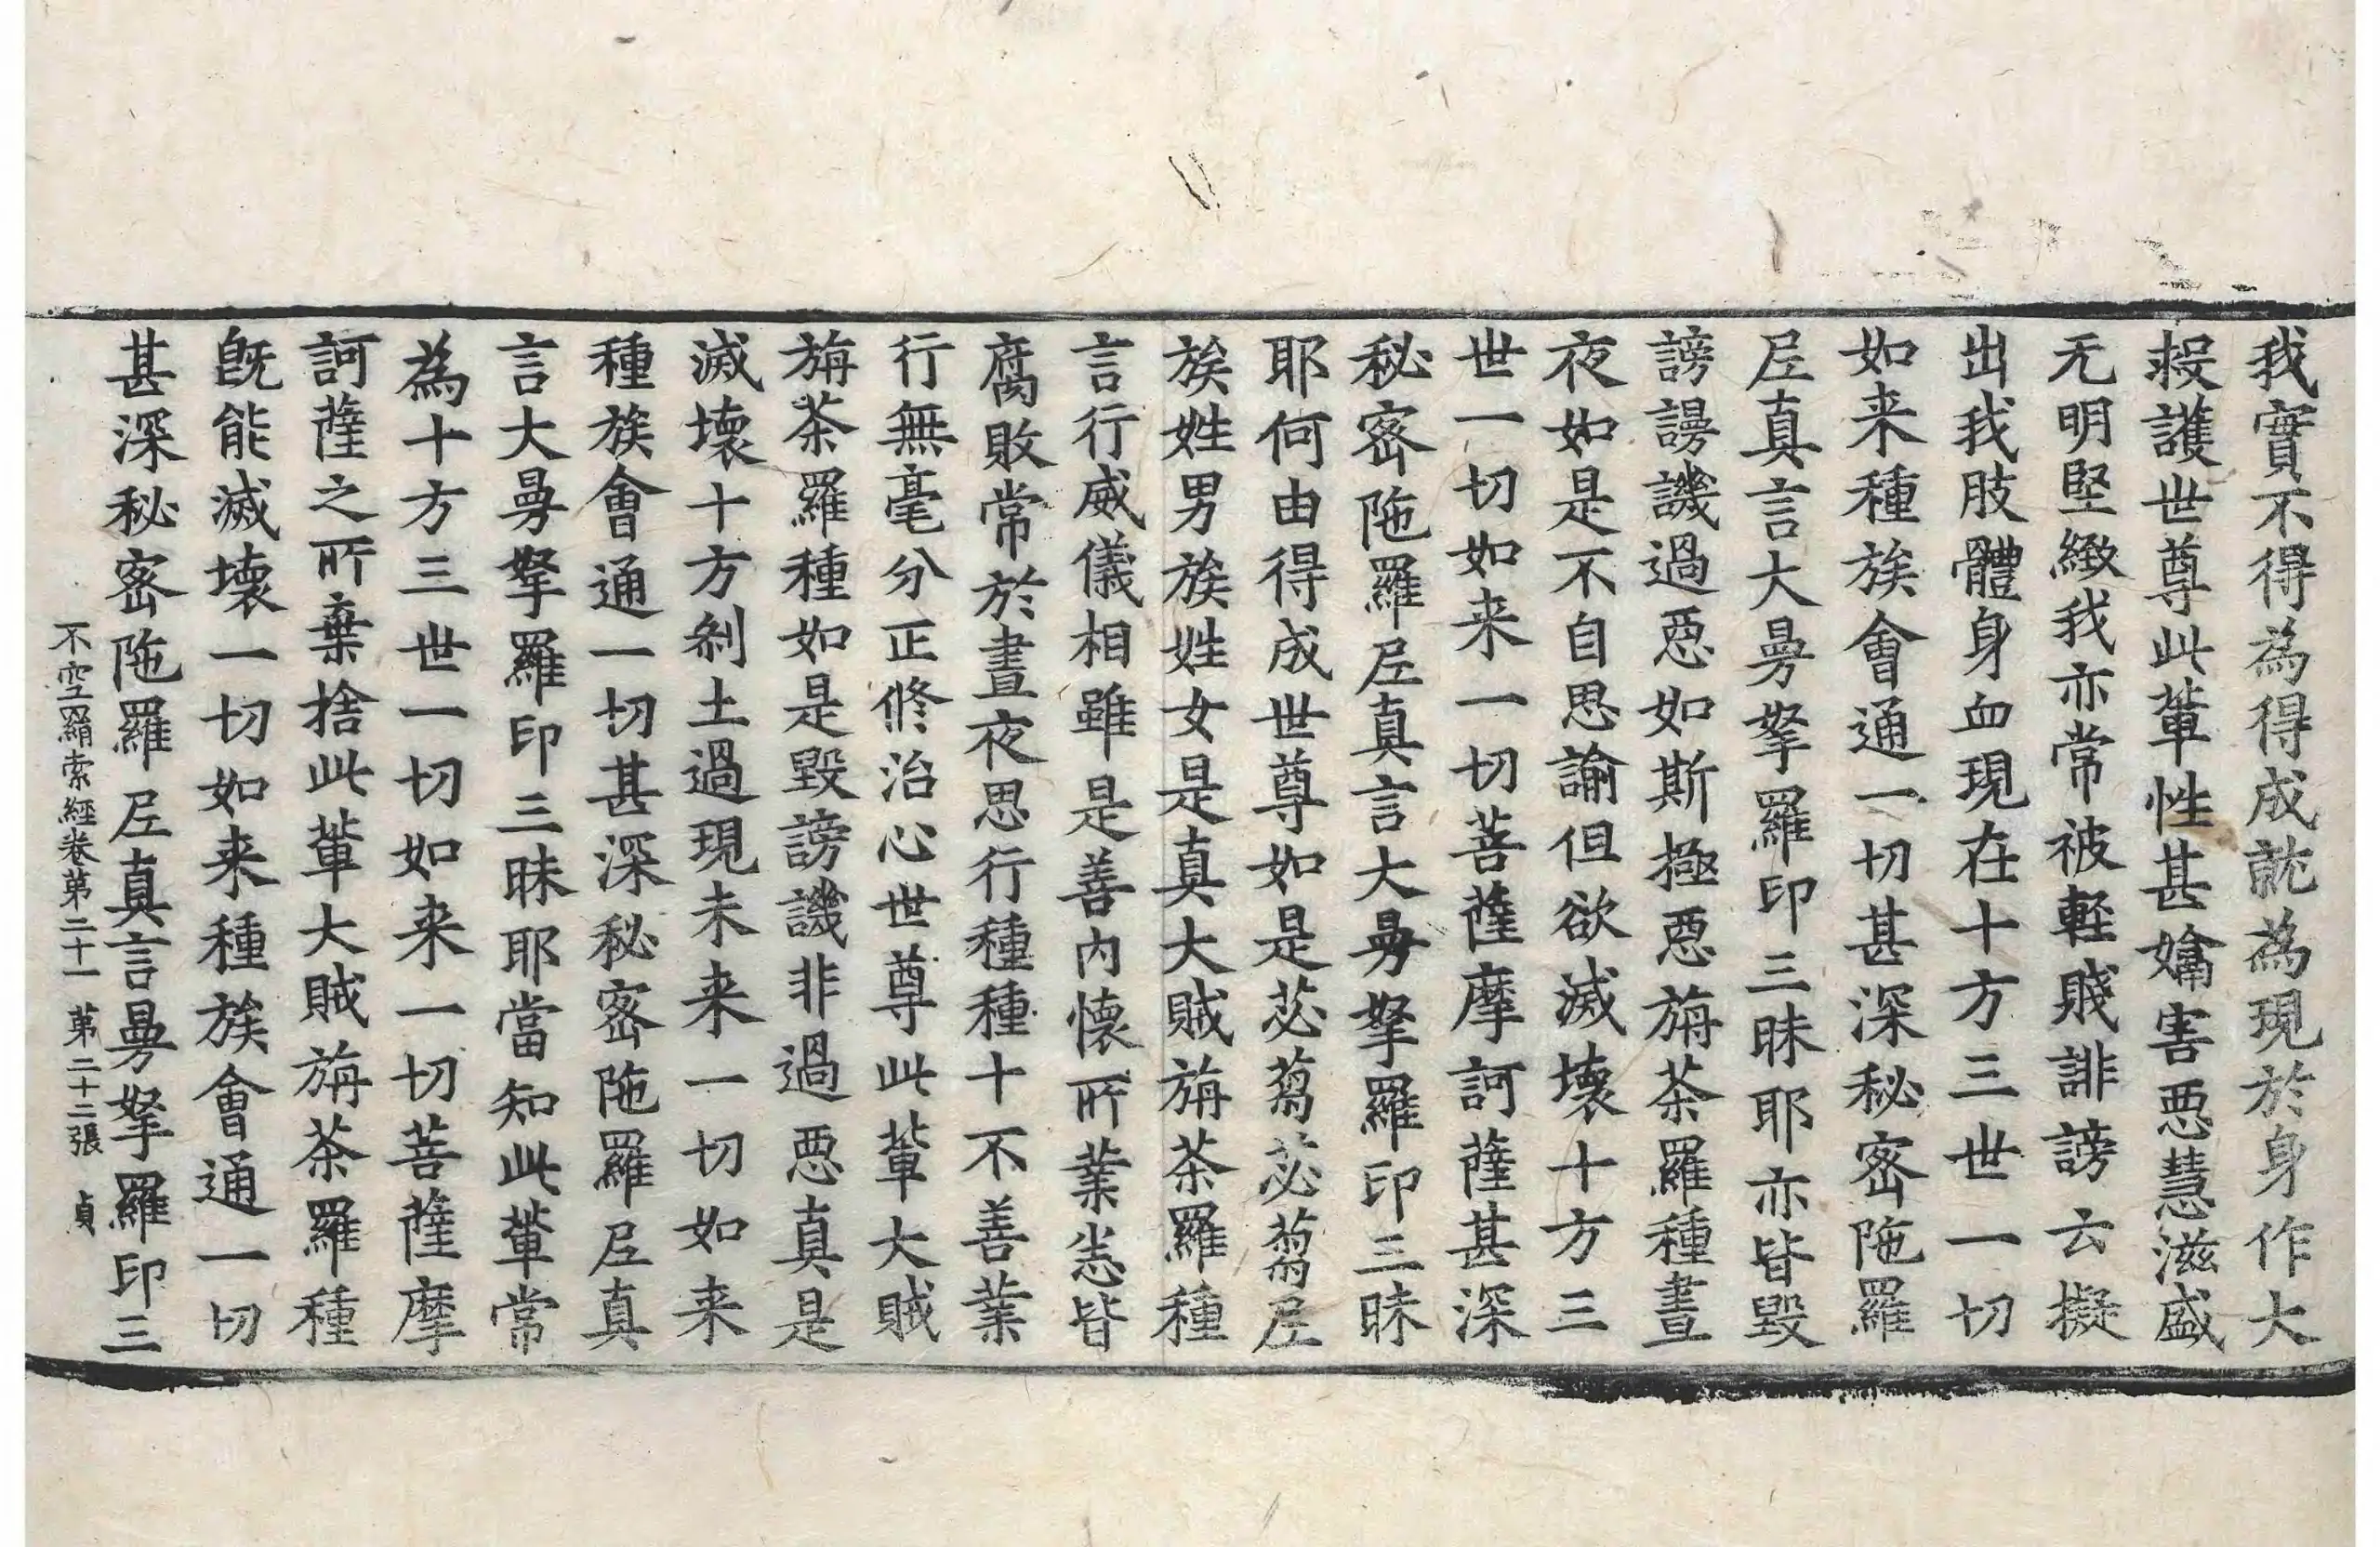 我實不得為得成就為現於身作大
救護世尊此軰性甚嬌害恶慧滋盛
无明堅緻我亦常被輕賤誹謗云擬
出我肢體身血現在十方三世一切
如来種族會通一切甚深秘密陁羅
尼真言大曼拏羅印三昧耶亦皆毀
謗謾譏過恶如斯極恶旃茶羅種晝
夜如是不自思諭但欲滅壞十方三
世一切如来一切菩薩摩訶薩甚深
秘密陁羅尼真言大曼拏羅印三昧
耶何由得成世尊如是苾蒭苾蒭尼
族姓男族姓女是真大賊旃茶羅種
言行威儀相雖是善内懷所業恙皆
腐敗常於晝夜思行種種十不善業
行無毫分正修治心世尊此軰大賊
旃茶羅種如是毀謗譏非過恶真是
滅壞十方剎土過現未来一切如来
種族會通一切甚深秘密陁羅尼真
言大曼拏羅印三昧耶當知此軰常
為十方三世一切如来一切菩薩摩
訶薩之所棄捨此軰大賊旃茶羅種
旣能滅壞一切如来種族會通一切
甚深秘密陁羅尼真言曼拏羅印三
不空羂索經卷第二十一 第二十二張 貞